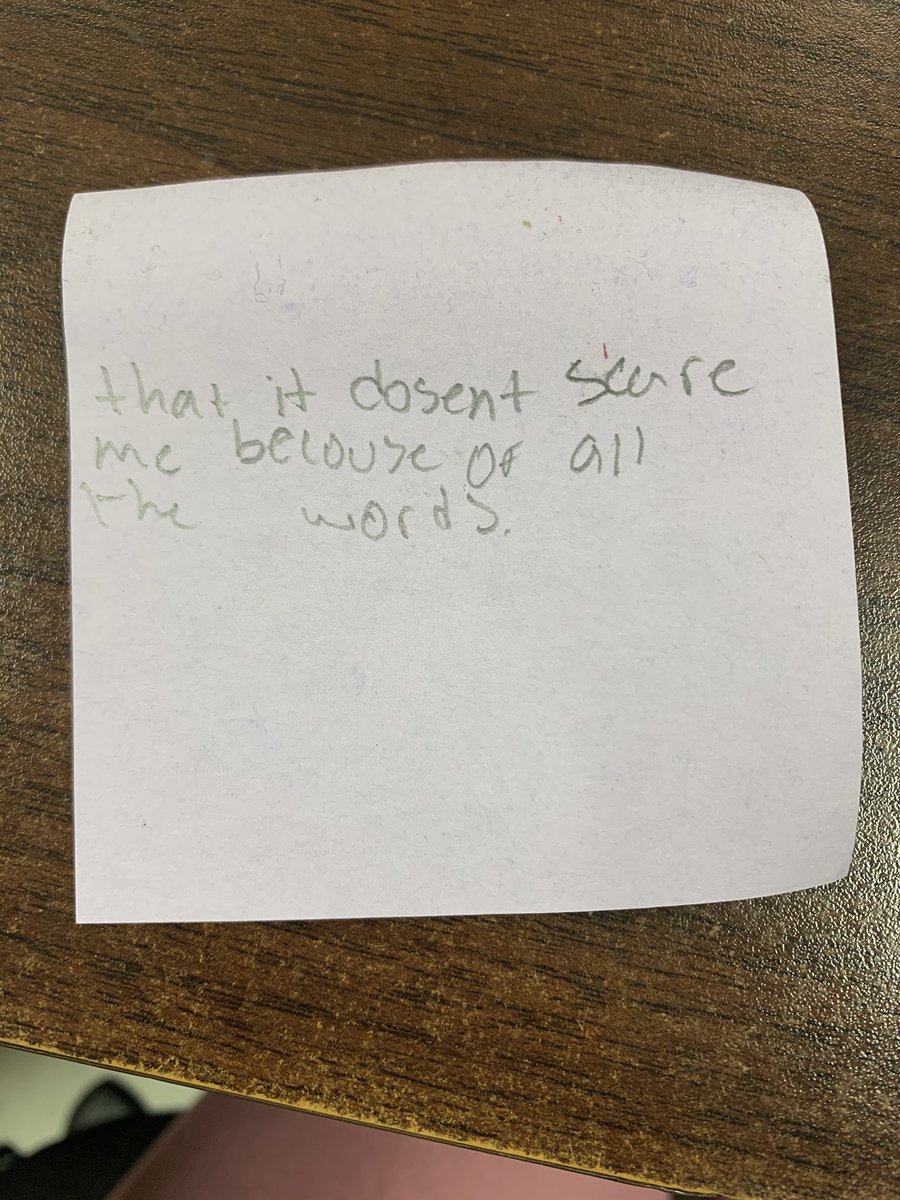 that it dosent scare
me becouse of all
the words.